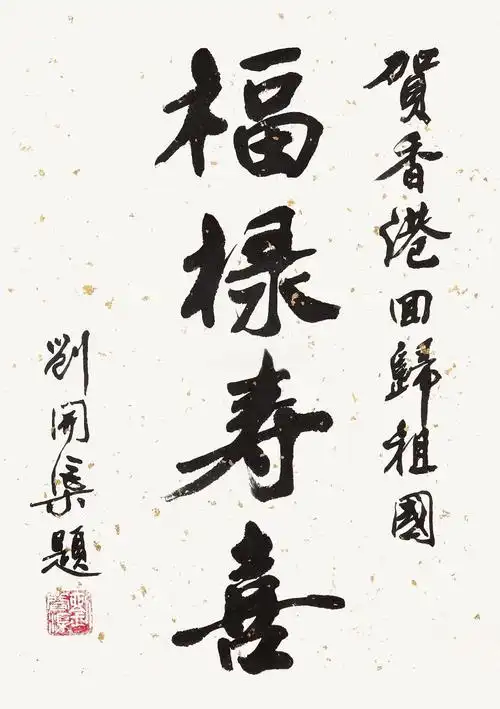 賀香港回歸祖國
福禄寿喜
劉開渠題